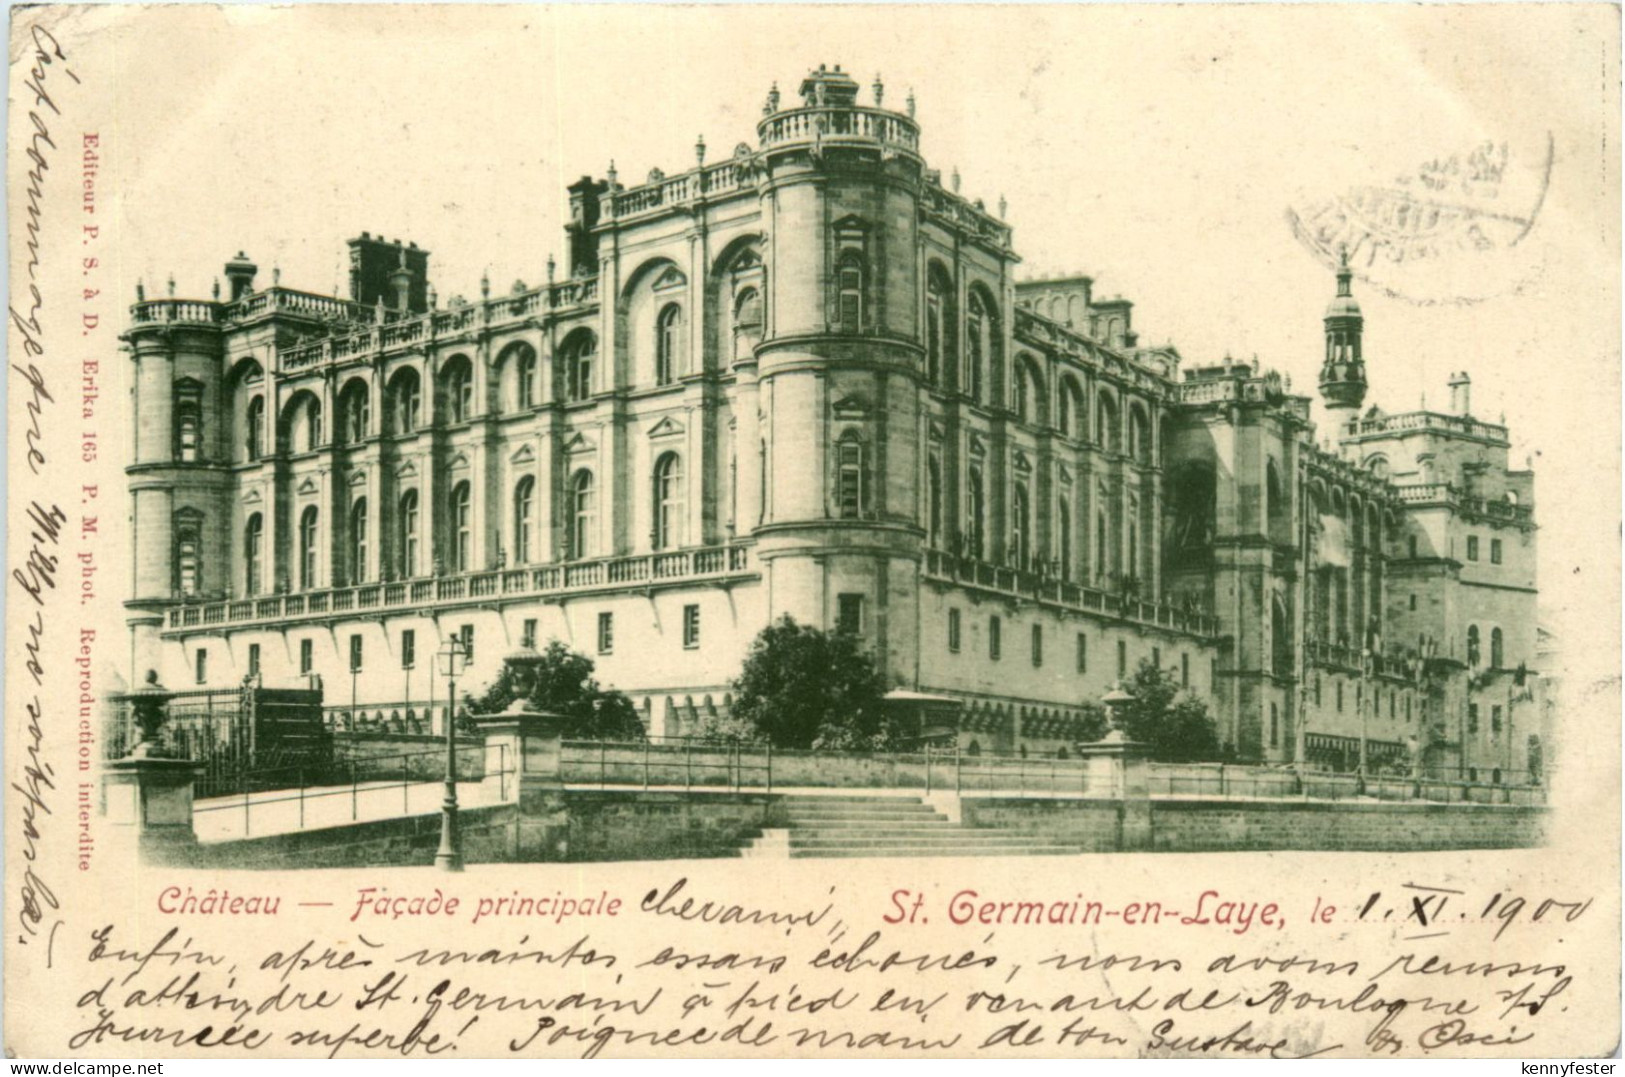 C'est dommage que Willy ne soit pas là.
Editeur P. S. à D. Erika 165 P. M. phot. Reproduction interdite
Château — Façade principale cher ami, St. Germain-en-Laye, le 1.XI.1900
Enfin, après maintes essais échoués, nous avons réussis
d'atteindre St. Germain à pied en venant de Boulogne s/S.
Journée superbe! Poignée de main de ton Gustave &
kennyfester